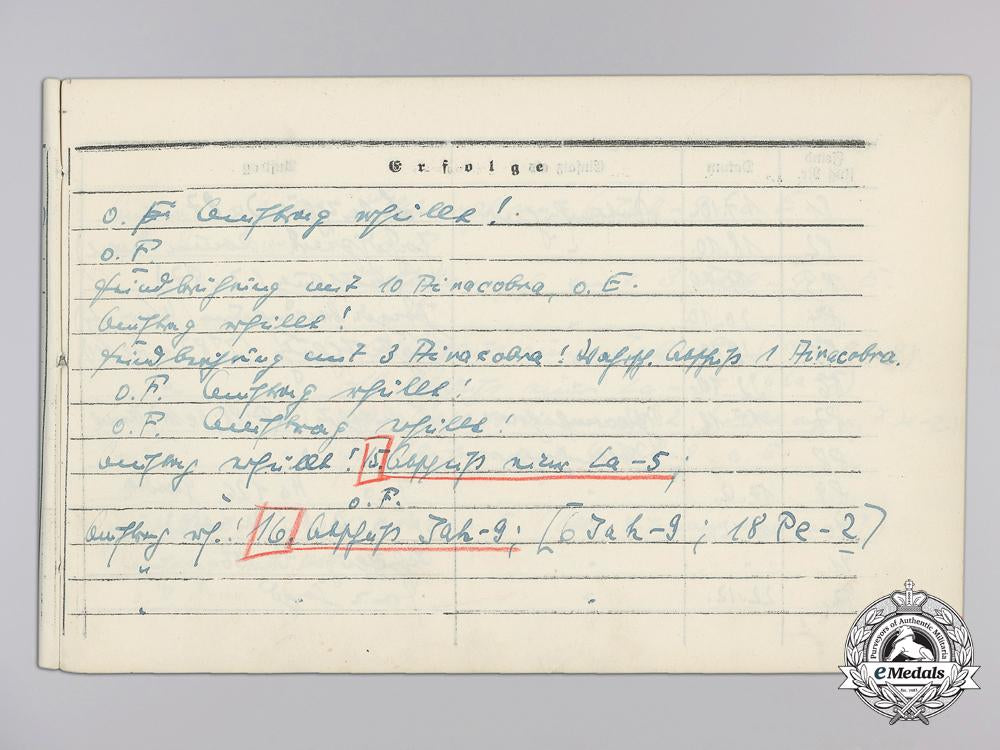 Erfolge
o. F. Auftrag erfüllt!
o. F.
Feindberührung mit 10 Airacobra, o. E.
Auftrag erfüllt!
Feindberührung mit 3 Airacobra! Wahrsch. Abschuß 1 Airacobra.
o. F. Auftrag erfüllt!
o. F. Auftrag erfüllt!
Auftrag erfüllt! 15. Abschuß einer La-5;
" o. F.
Auftrag erf.! 16. Abschuß Jak-9; (6 Jak-9; 18 Pe-2)
"
" "
Purveyors of Authentic Militaria
eMedals